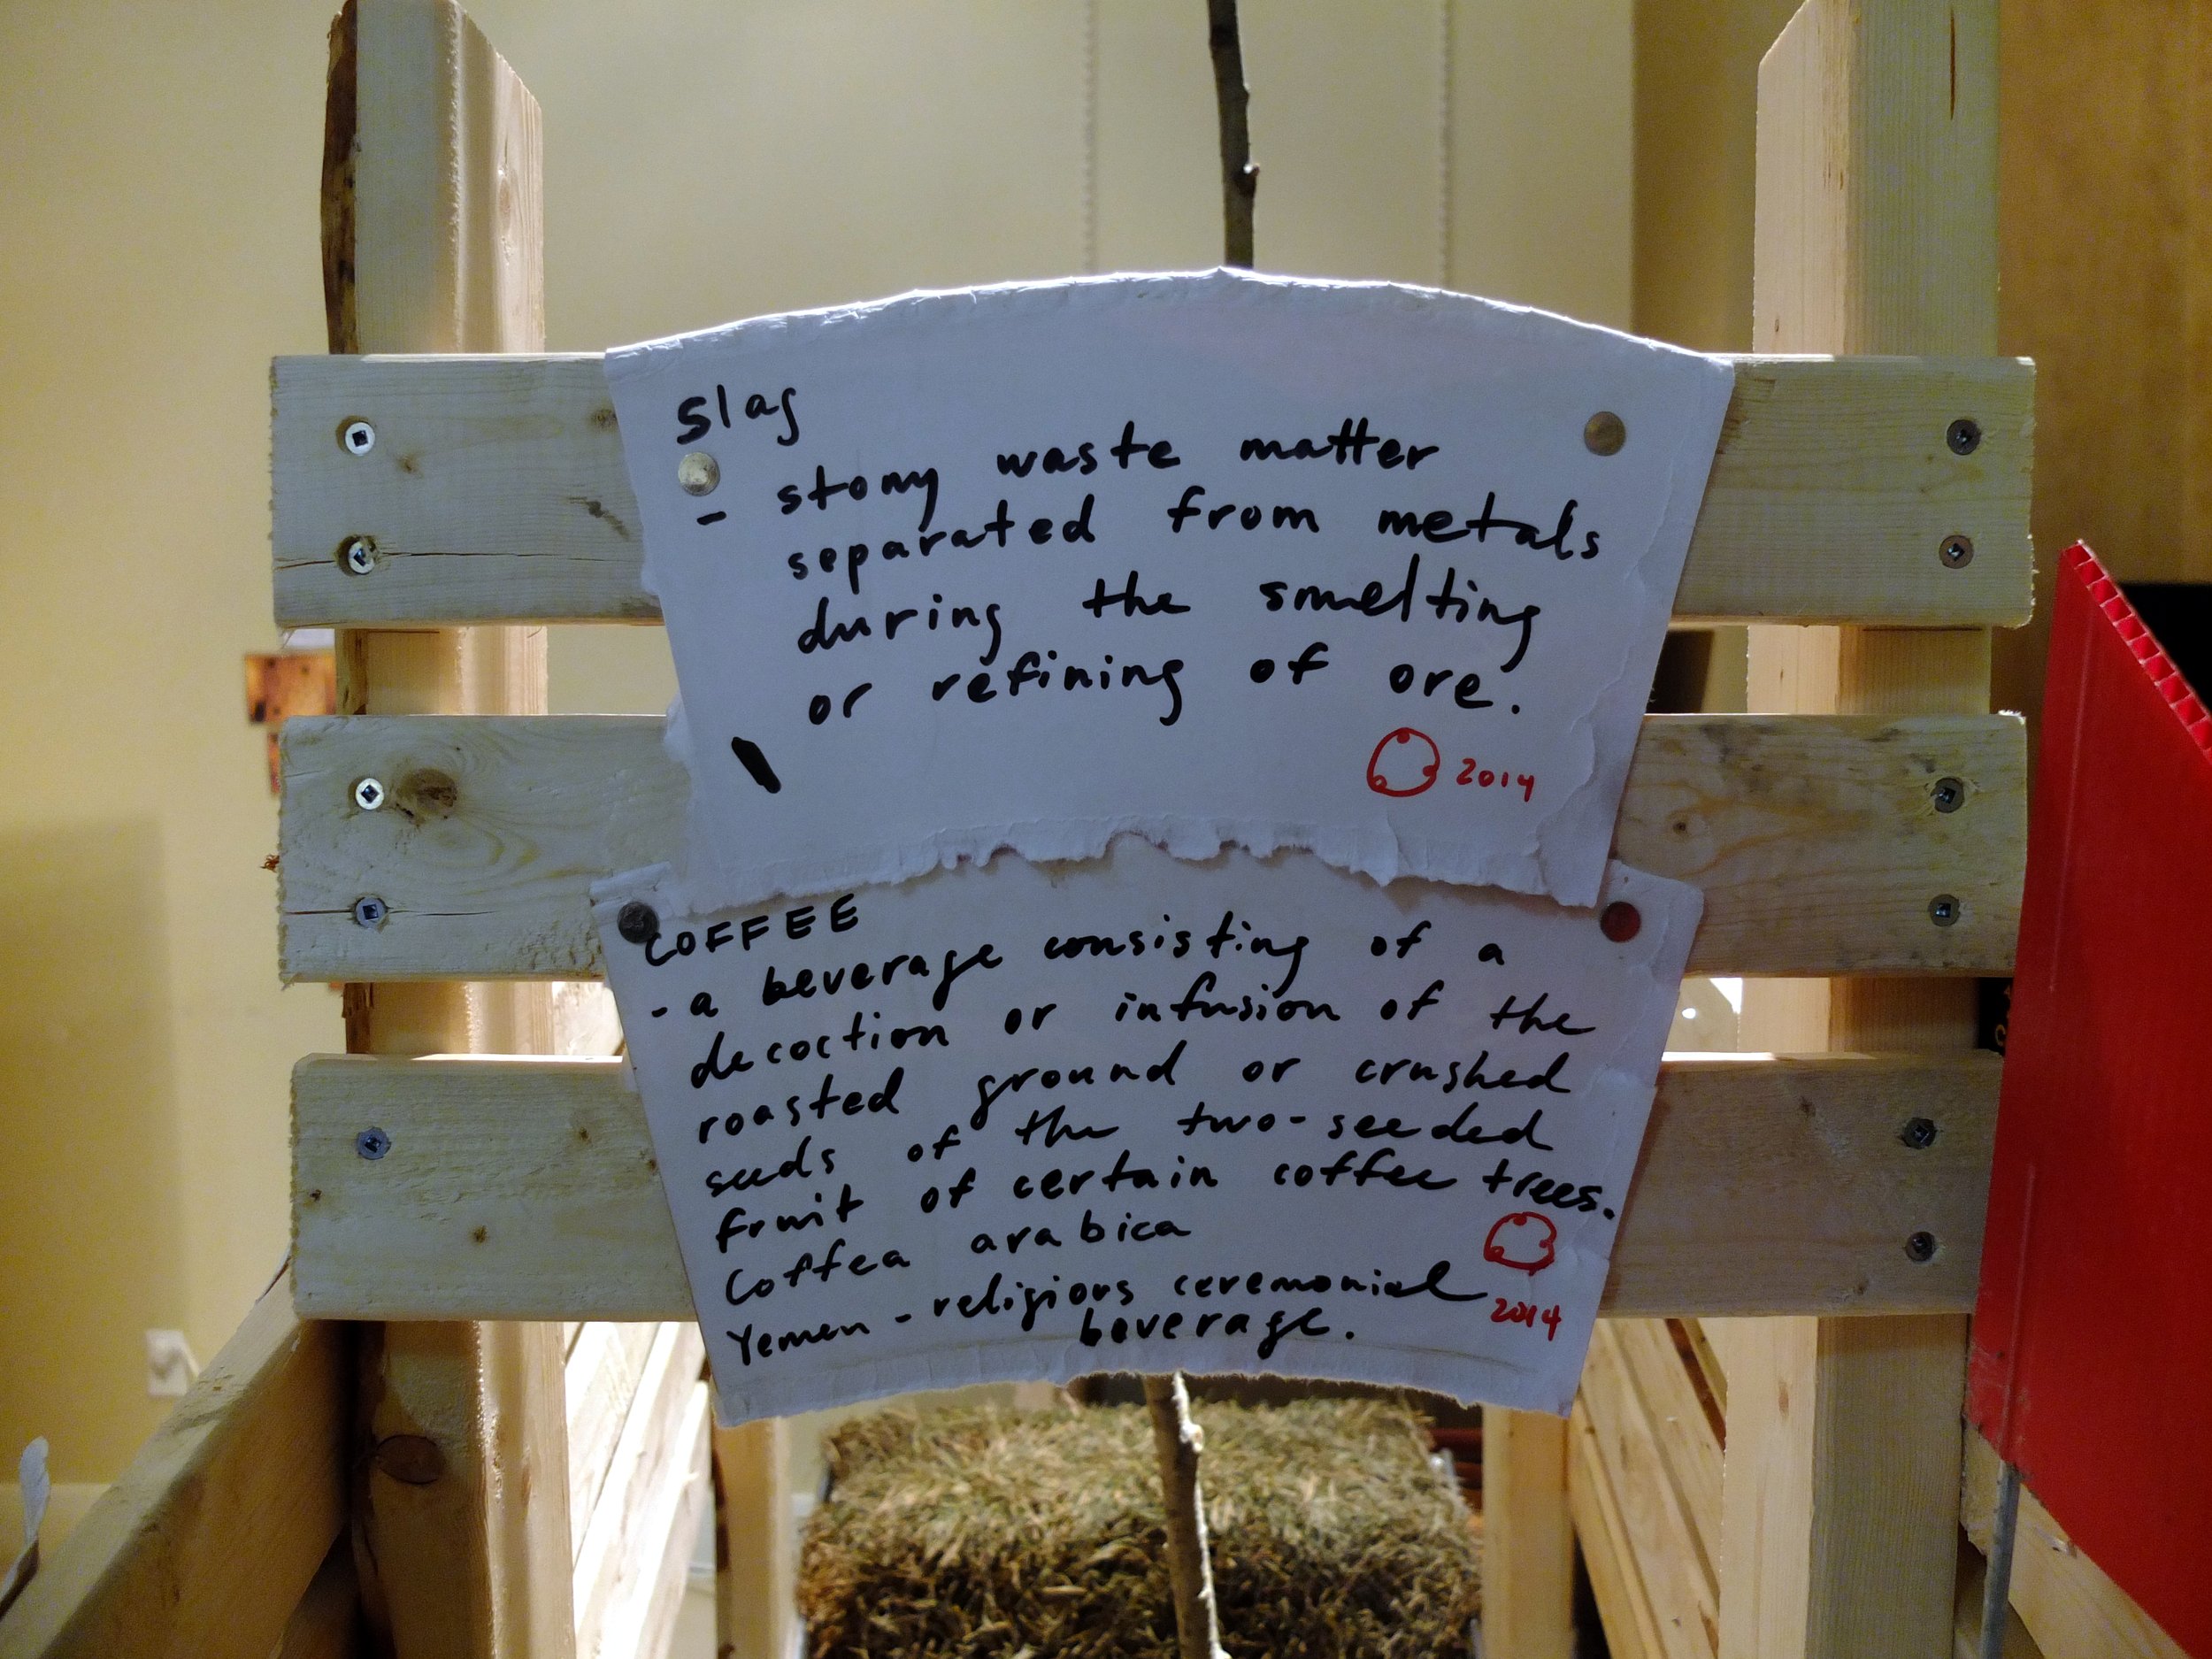 Slag
- stony waste matter
separated from metals
during the smelting
or refining of ore.
2014
COFFEE
- a beverage consisting of a
decoction or infusion of the
roasted ground or crushed
seeds of the two-seeded
fruit of certain coffee trees.
Coffea arabica
Yemen - religious ceremonial
beverage.
2014